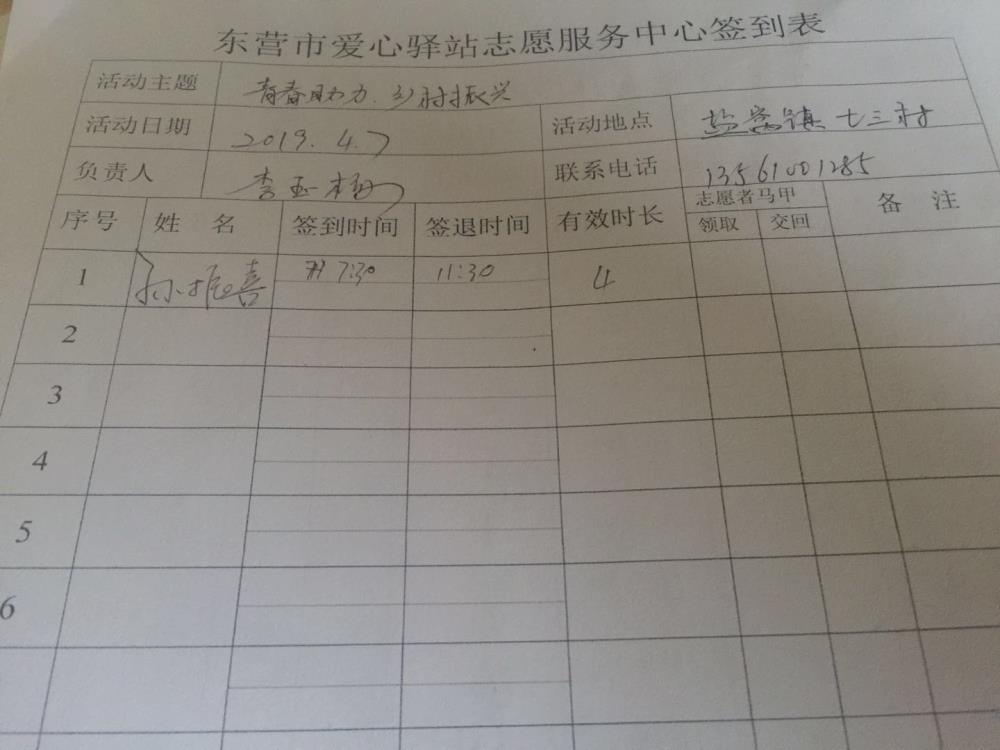 东营市爱心驿站志愿服务中心签到表
活动主题 青春助力.乡村振兴
活动日期 2019.4.7 活动地点 盐窝镇七三村
负责人 李玉 联系电话 13561001285
序号 姓名 签到时间 签退时间 有效时长 志愿者马甲 备注
领取 交回
1 孙振喜 7:30 11:30 4
2
3
4
5
6